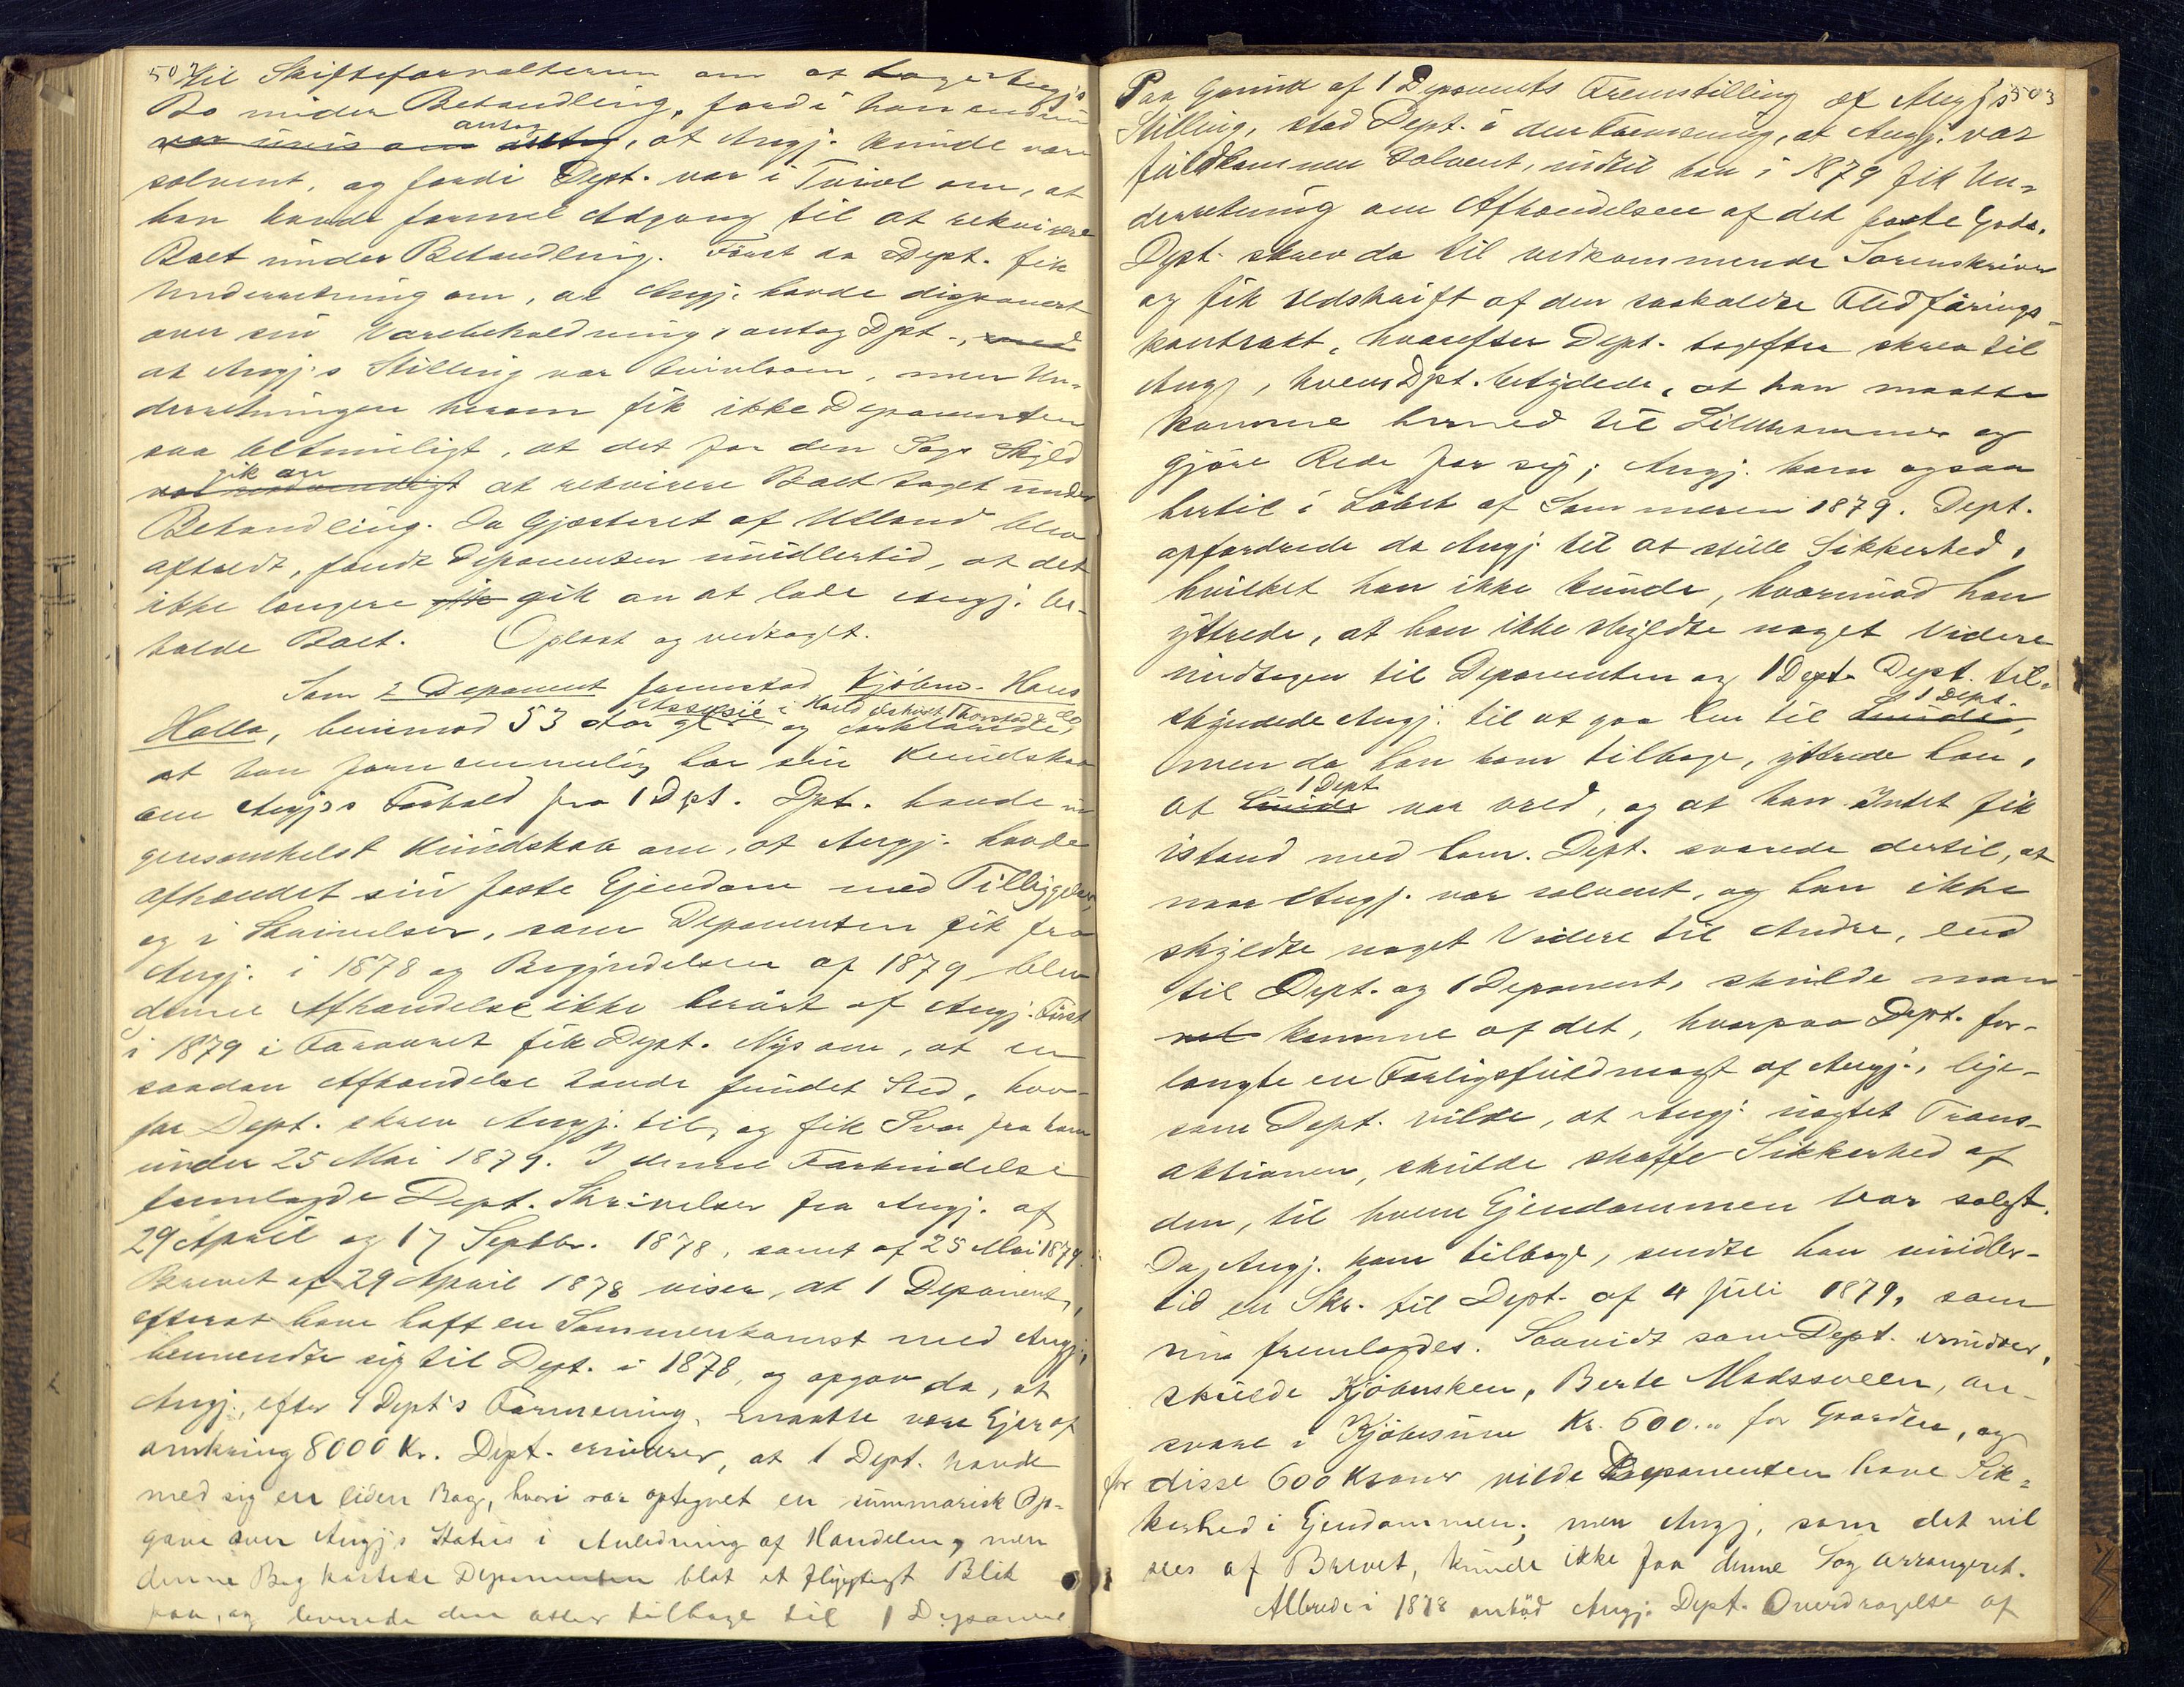 502
til Skifteforvalteren om at tage Angj's
Bo under Behandling, fordi han endnu
var uvis om antog, at Angj. kunde være
solvent, og fordi Dept. var i Tvivl om, at
han havde formel Adgang til at rekvirere
Boet under Behandling. Først da Dept. fik
Underretning om, at Angj. havde disponeret
over sin Varebeholdning, antog Dpt.,
at Angj.s Stilling var tvivlsom, men Un-
derretningen herom fik ikke Deponenten
saa betimeligt, at det for den Sags Skyld
var nødvendigt gik an at rekvirere Boet taget under
Behandling. Da Gjæsteret af Ulland blev
afholdt, fandt Deponenten imidlertid, at det
ikke længere gik an at lade Angj. be-
holde Boet. Oplæst og vedtaget.
Som 2 Deponent fremstod Kjøbm. Hans
Halla, henimod 53 Aar gl. og forklarede,
at han fornemmelig har sin Kundskab
om Angj.s Forhold fra 1 Dpt. Dpt. havde in-
gensomhelst Kundskab om, at Angj. havde
afhændet sin faste Ejendom med Tilliggelser,
og i Skrivelser, som Deponenten fik fra
Angj. i 1878 og Begyndelsen af 1879 blev
denne Afhændelse ikke berørt af Angj. Først
i 1879 i Foraaret fik Dept. Nys om, at en
saadan Afhændelse havde fundet Sted, hvor-
for Dept. skrev Angj. til, og fik Svar fra ham
under 25 Mai 1879. I denne Forbindelse
fremlagde Dept. Skrivelser fra Angj. af
29 April og 17 Septbr. 1878, samt af 25 Mai 1879.
Brevet af 29 April 1878 viser, at 1 Deponent,
efterat have haft en Sammenkomst med Angj.,
henvendte sig til Dept. i 1878, og opgav da, at
Angj., efter 1 Dept's Formening, maatte være Ejer af
omkring 8000 Kr. Dept. erindrer, at 1 Dept. havde
med sig en liden Bog, hvori var optegnet en summarisk Op-
gave over Angj.s Status i Anledning af Handelen, men
denne Bog kastede Deponenten blot et flygtigt Blik
paa, og leverede den atter tilbage til 1 Deponent
503
Paa Grund af 1 Deponents Fremstilling af Angj's
Stilling, stod Dept. i den Formening, at Angj. var
fuldkommen solvent, indtil han i 1879 fik Un-
derretning om Afhændelsen af det faste Gods.
Dept. skrev da til vedkommende Sorenskriver
og fik Udskrift af den saakaldte Fledførings-
kontrakt, hvorefter Dept. derefter skrev til
Angj., hvem Dpt. betydede, at han maatte
komme herned til Lillehammer og
gjøre Rede for sig; Angj. kom ogsaa
hertil i Løbet af Sommeren 1879. Dept.
opfordrede da Angj. til at stille Sikkerhed,
hvilket han ikke kunde, hvorimod han
yttrede, at han ikke skyldte noget Videre
undtagen til Deponenten og 1 Dept. Dept. til-
skyndede Angj. til at gaa hen til 1 Dept.,
men da han kom tilbage, yttrede han,
at 1 Dept var vred, og at han Intet fik
istand med ham. Dept. svarede dertil, at
naar Angj. var solvent, og han ikke
skyldte noget Videre til Andre, end
til Dept. og 1 Deponent, skulde man
nok komme af det, hvorpaa Dept. for-
langte en Forligsfuldmagt af Angj., lige-
som Dept. vilde, at Angj. uagtet Trans-
aktionen, skulde skaffe Sikkerhed af
den, til hvem Ejendommen var solgt.
Da Angj. kom tilbage, sendte han imidler-
tid en Skr. til Dept. af 4 Juli 1879, som
nu fremlagdes. Saavidt som Dept. erindrer,
skulde Kjøbersken, Berte Madssveen, an-
svare i Kjøbesum Kr. 600.„ for Gaarden, og
for disse 600 Kroner vilde Deponenten have Sik-
kerhed i Ejendommen; men Angj., som det vil
sees af Brevet, kunde ikke faa denne Sag arrangeret.
Allerede i 1878 anbød Angj. Dept. Overdragelse af